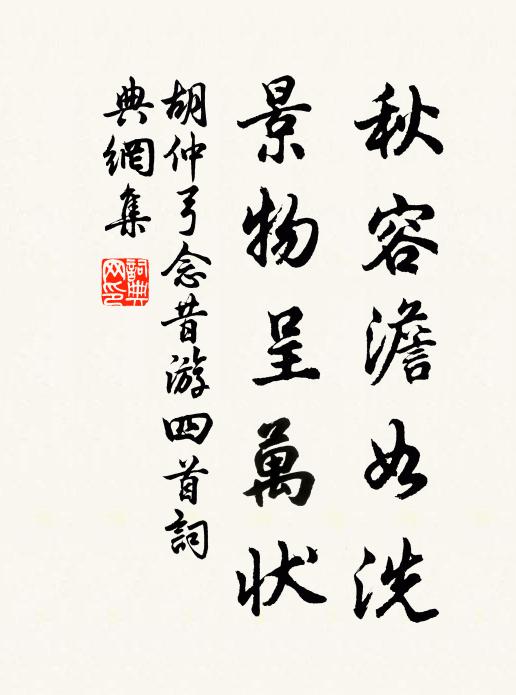 秋容澹如洗
景物呈萬狀
胡仲弓念昔游四首詞
典網集
詞典网印